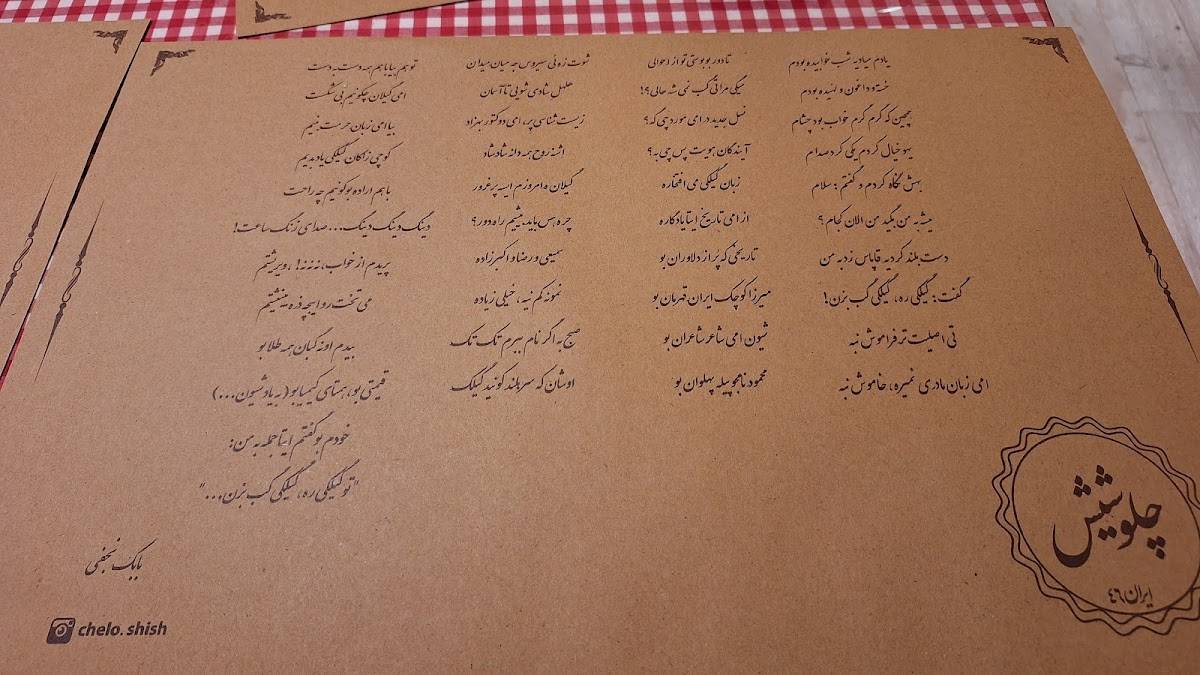 یادم میاد یه شب خوابیده بودم
خسته و داغون و لهیده بودم
همچین که گرم گرم خواب بود چشام
یهو خیال کردم یکی کرد صدام
بهش نگاه کردم و گفتم: سلام
میشه به من بگید من الان کجام؟
دست بلند کرد یه قاپاس زد به من
گفت: گیلکی ره، گیلکی گب بزن!
تی اصلیت تر فراموش نبه
امی زبان مادری نمیره، خاموش نبه
تا دور بوبوستی تو از احوالی
میگی مرا تی گب نمی شه حالی؟!
نسل جدید در امی مورد چی گه؟
آیندگان هویت پس چی یه؟
زبان گیلکی می افتخاره
از امی تاریخ ایتا یادگاره
تاریخی که پُر از دلاوران بو
میرزا کوچک ایران قهرمان بو
شیون امی شاعر شاعران بو
محمود نامجو پیله پهلوان بو
شوت زه نی سیروس جه میان میدان
هلهل شادی شویی تا آسمان
زیست شناسی پر، امی دوکتور بهزاد
اشنه روح همه دانه شاد شاد
گیلان ه امروزم ایسه پر غرور
چره پس باید بیشیم راه دور؟
سمیعی و رضا و اکبرزاده
نمونه کم نیه، خیلی زیاده
صبح به اگر نام ببرم تک تک
اوشان که سربلند کونید گیلک
تو هم بیا با هم همه دست به دست
امی گیلان چکونیم بی شکست
بیا امی زبان حرمت بنیم
کوچی زاکان گیلکی یاد بدیم
با هم اراده بوکونیم چه راحت
دینگ دینگ دینگ دینگ... صدای زنگ ساعت!
پریدم از خواب، ئه ئه ئه!، ویریشتم
می تخت رو ایچه ذره بینیشتم
بیدم اونه گبان همه طلا بو
قیمتی بو، همتای کیمیا بو (به یاد شیون...)
خودم بوگفتم ایتا جمله به من:
"تو گیلکی ره، گیلکی گب بزن..."
بابک نجفی
chelo.shish
چلو شیش
ایران ۴۶